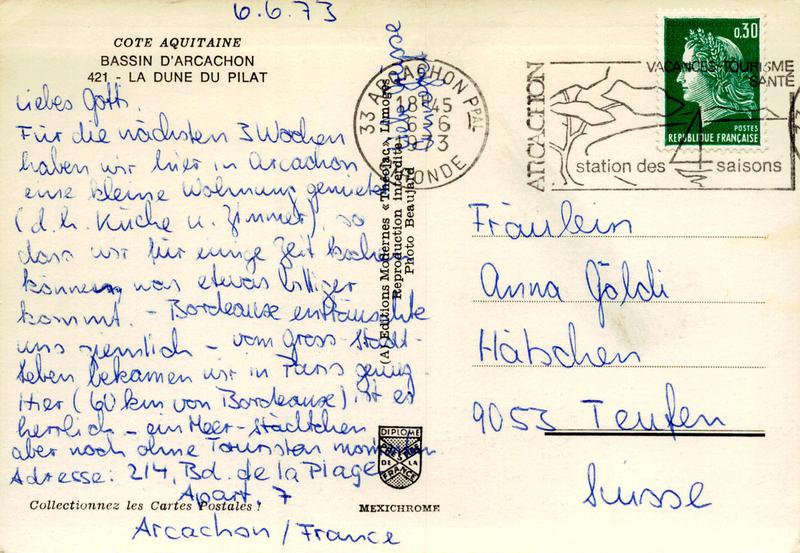 6.6.73
COTE AQUITAINE
BASSIN D'ARCACHON
421 - LA DUNE DU PILAT
Liebes Gotti.
Für die nächsten 3 Wochen
haben wir hier in Arcachon
eine kleine Wohnung gemietet
(d.h. Küche u. Zimmer), so
dass wir für einige Zeit kochen
können, was etwas billiger
kommt. - Bordeause enttäuschte
uns ziemlich - vom Gross-Stadt-
leben bekamen wir in Paris genug.
Hier (60 km von Bordeause) ist es
herrlich - ein Meer-Städtchen
aber noch ohne Touristen momentan
Adresse: 214, Bd. de la Plage
Apart. 7
Arcachon / France
Collectionnez les Cartes Postales !
Liebe Grüsse
(A) Editions Modernes «Théojac», Limoges
Reproduction interdite
Photo Beaujard
DIPLOME
PRESTIGE
DE LA
FRANCE
MEXICHROME
33 ARCACHON PPAL
18H45
6-6
1973
GIRONDE
ARCACHON
VACANCES-TOURISME
SANTÉ
station des saisons
0,30
POSTES
REPUBLIQUE FRANÇAISE
Fräulein
Anna Göldi
Hätschen
9053 Teufen
Suisse